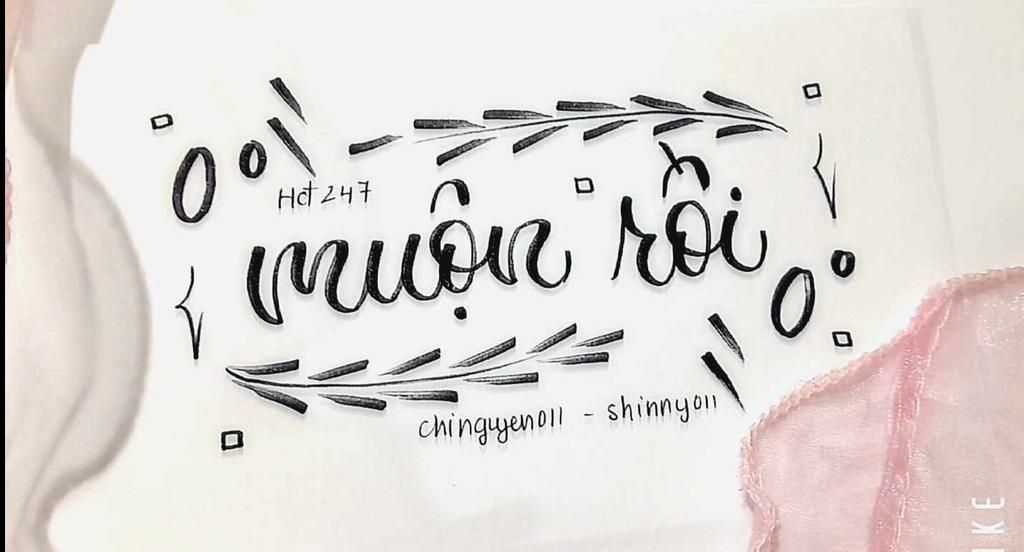 Hđ 247
muộn rồi
chinguyen011 - shinny011
KE